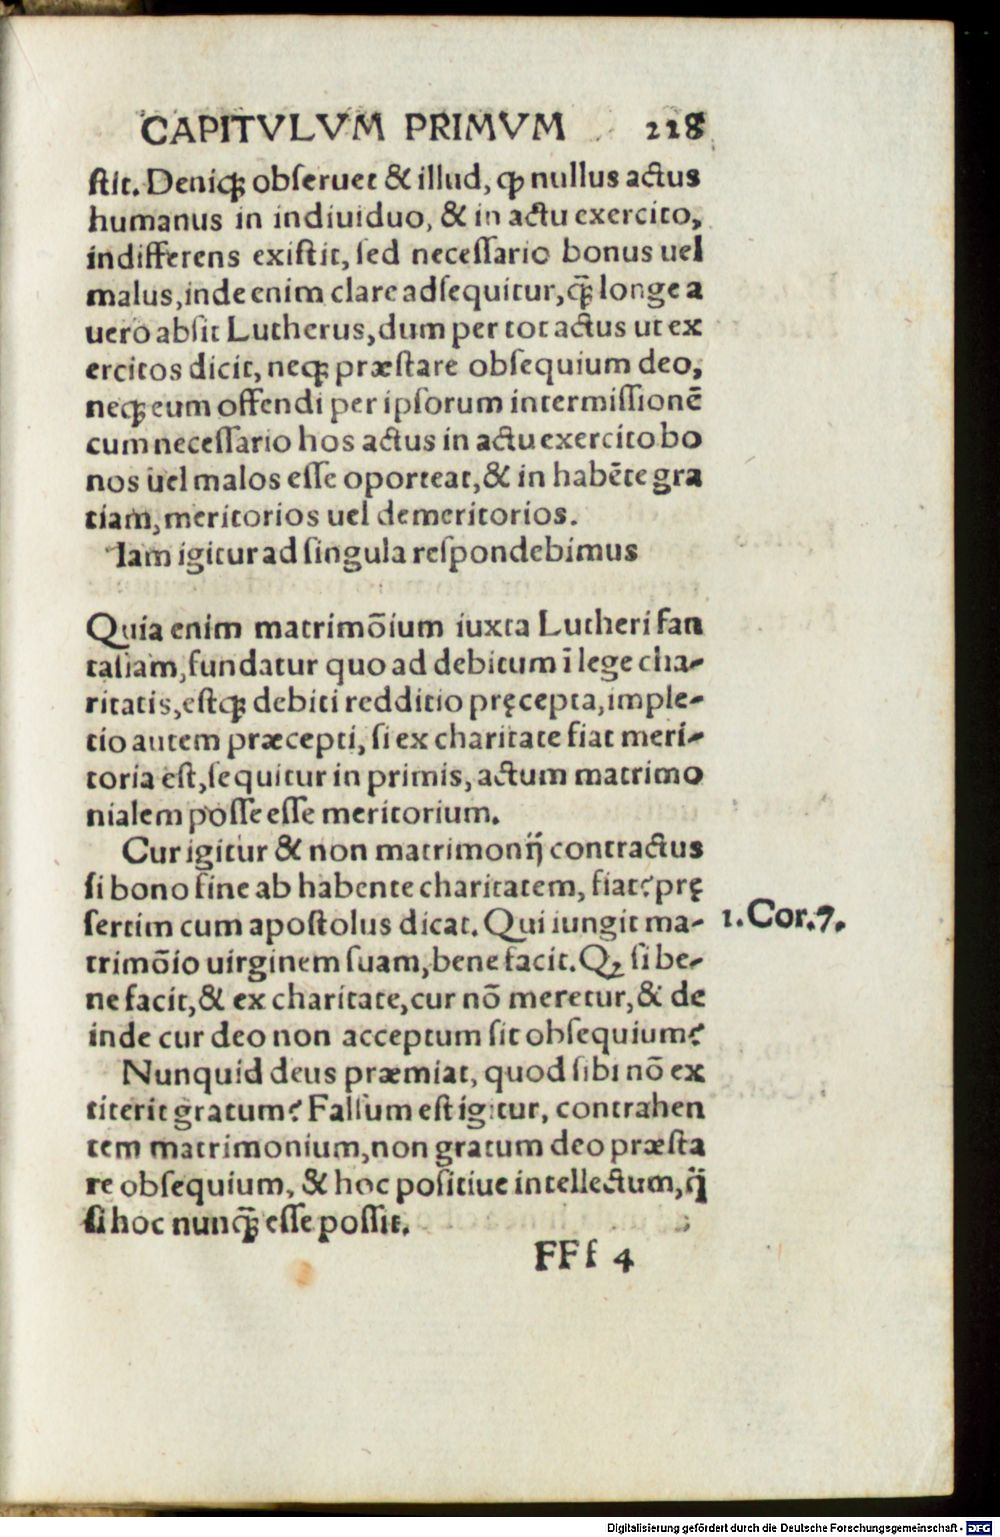 CAPITVLVM PRIMVM 228
ſtit. Deniqꝫ obſeruet & illud, ꝙ nullus actus
humanus in indiuiduo, & in actu exercito,
indifferens exiſtit, ſed neceſſario bonus uel
malus, inde enim clare adſequitur, q̃ꝫ longe a
uero abſit Lutherus, dum per tot actus ut ex
ercitos dicit, neqꝫ præſtare obſequium deo,
neqꝫ eum offendi per ipſorum intermiſſionẽ
cum neceſſario hos actus in actu exercito bo
nos uel malos eſſe oporteat, & in habẽte gra
tiam, meritorios uel demeritorios.
Iam igitur ad ſingula reſpondebimus
Quia enim matrimõium iuxta Lutheri fan
taſiam, fundatur quo ad debitum ĩ lege cha-
ritatis, eſtqꝫ debiti redditio pręcepta, imple-
tio autem præcepti, ſi ex charitate fiat meri-
toria eſt, ſequitur in primis, actum matrimo
nialem poſſe eſſe meritorium.
Cur igitur & non matrimonij̃ contractus
ſi bono fine ab habente charitatem, fiat? prę
ſertim cum apoſtolus dicat. Qui iungit ma-
1. Cor. 7.
trimõio uirginem ſuam, bene facit. Qꝫ ſi be-
ne facit, & ex charitate, cur nõ meretur, & de
inde cur deo non acceptum ſit obſequium?
Nunquid deus præmiat, quod ſibi nõ ex
titerit gratum? Falſum eſt igitur, contrahen
tem matrimonium, non gratum deo præſta
re obſequium, & hoc poſitiue intellectum, q̃
ſi hoc nunq̃ꝫ eſſe poſſit.
FFf 4
Digitalisierung gefördert durch die Deutsche Forschungsgemeinschaft - DFG